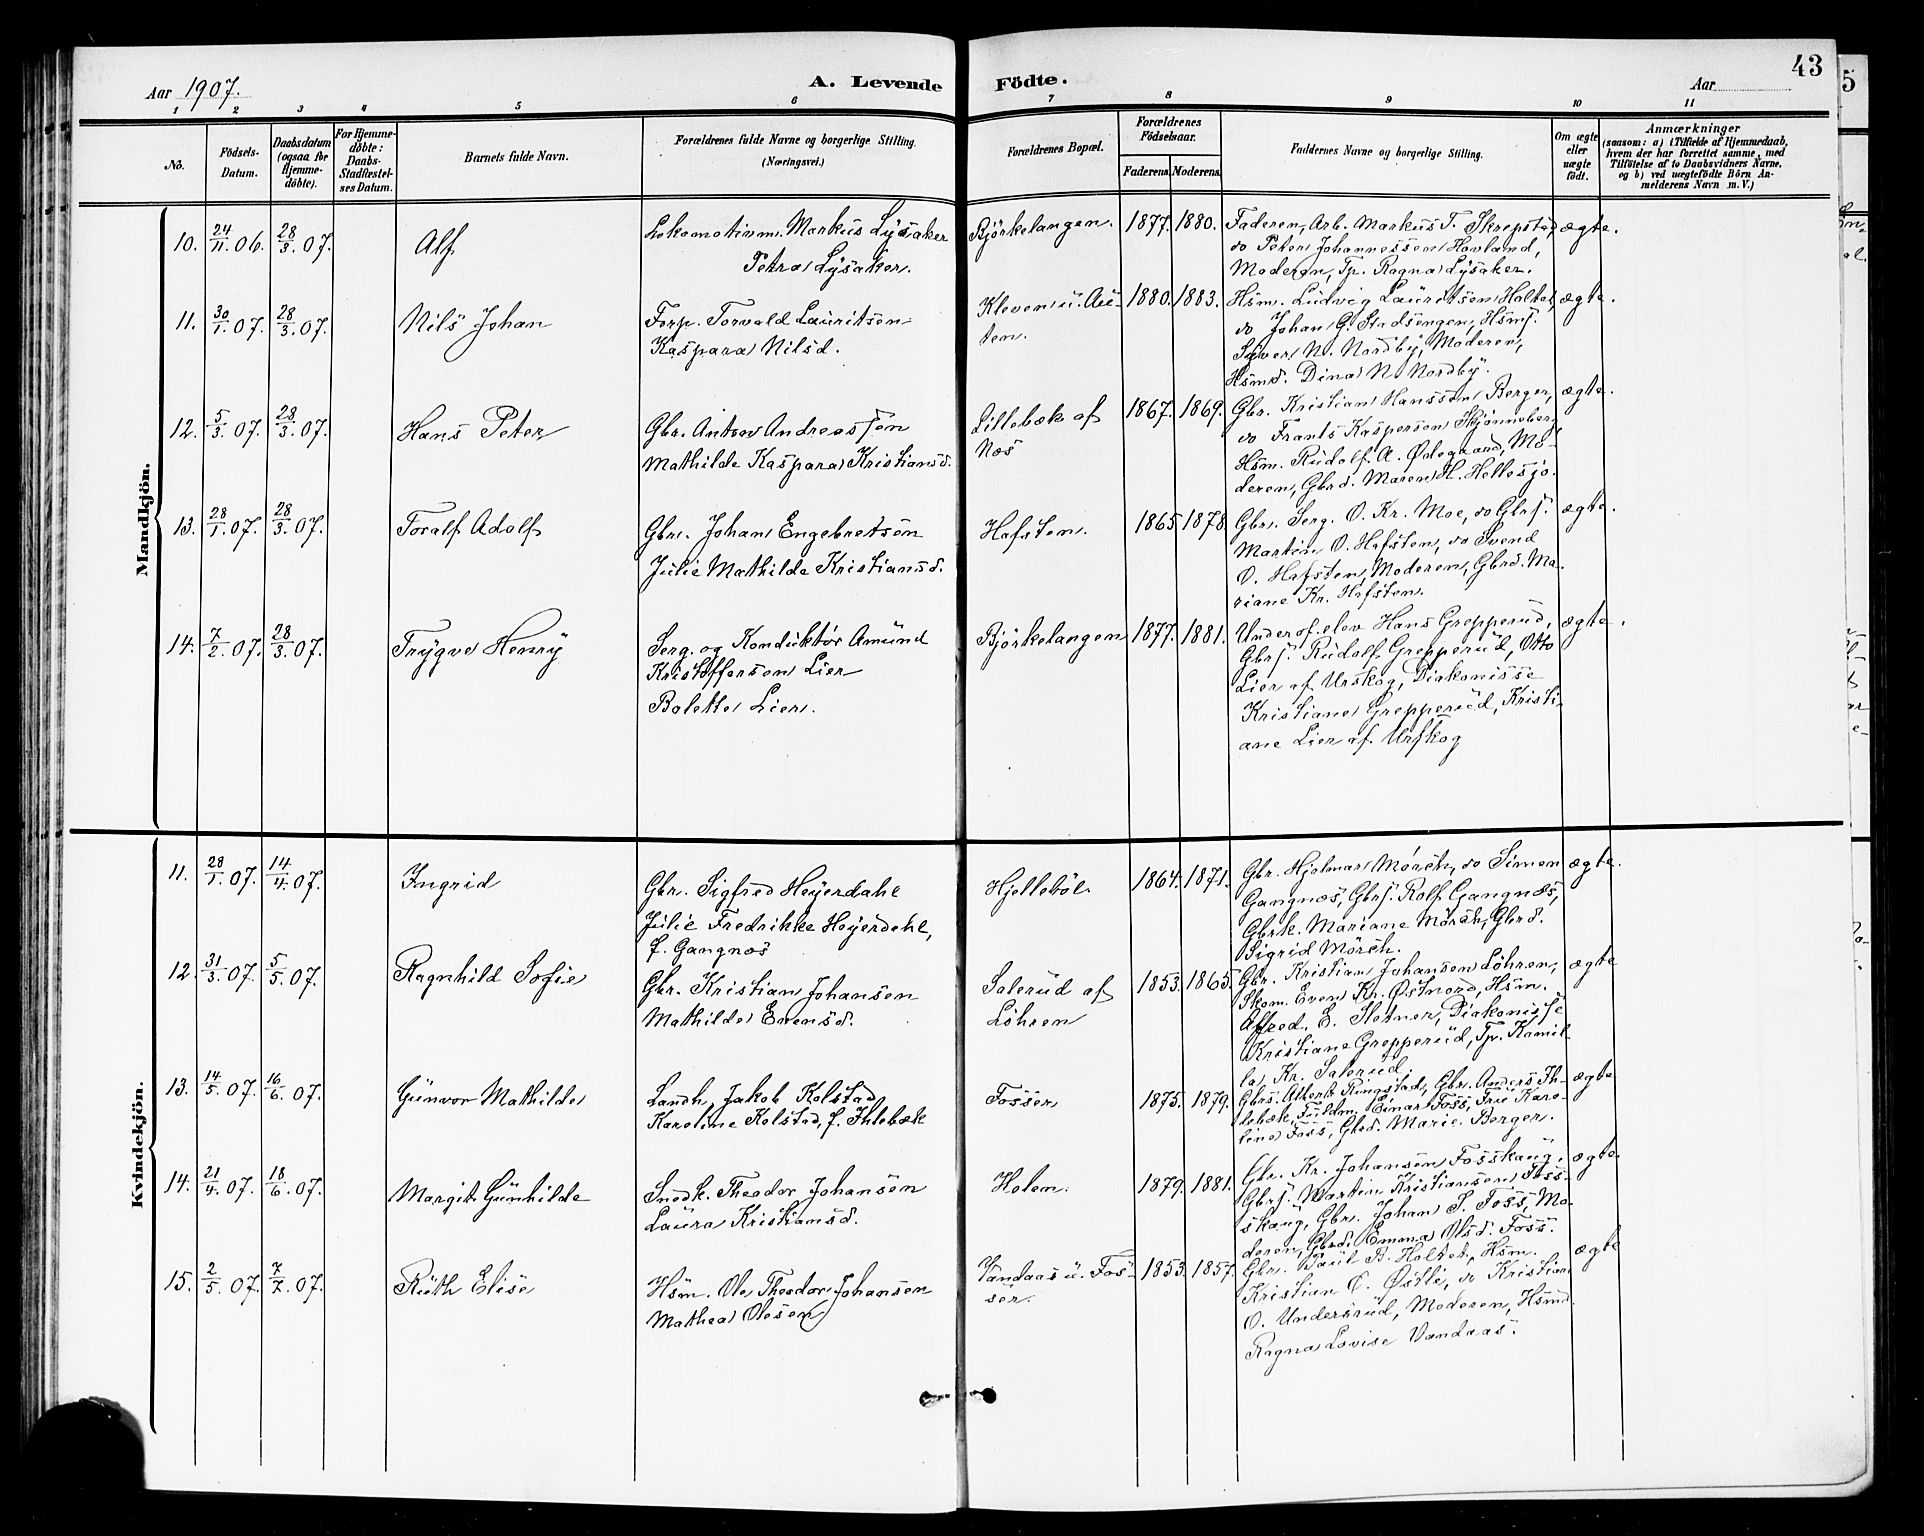 43
Aar 1907.
A. Levende Födte.
Aar
1 2 3 4 5 6 7 8 9 10 11
No.
Födsels-
Datum.
Daabsdatum
(ogsaa for
Hjemme-
döbte).
For Hjemme-
döbte:
Daabs-
Stadfæstel-
ses Datum.
Barnets fulde Navn.
Forældrenes fulde Navne og borgerlige Stilling.
(Næringsvei.)
Forældrenes Bopæl.
Forældrenes
Födselsaar.
Faderens. Moderens.
Faddernes Navne og borgerlige Stilling.
Om ægte
eller
uægte
født.
Anmærkninger
(saasom: a) i Tilfælde af Hjemmedaab,
hvem der har forrettet samme, med
Tilföielse af to Daabsvidners Navne,
og b) ved uægtefödte Börn An-
melderens Navn m. V.)
Mandkjön.
10. 24/11 06. 28/3 07. Alf
Lokomotivm. Markus Lysaker
Petra Lysaker.
Björkelangen. 1877. 1880.
Faderen, Arb. Markus T. Skrepstad, ægte.
do Peter Johannessen Hovland,
Moderen, Tp. Ragna Lysaker.
11. 30/1 07. 28/3 07. Nils Johan
Forp. Torvald Lauritsen
Kaspara Nilsd.
Kleven u. Au-
ten.
1880. 1883.
Hsm. Ludvig Lauritsen Holtet, ægte.
do Johan G. Stadsengen, Hsms.
Syver N. Nordby, Moderen,
Hsmd. Dina N. Nordby.
12. 5/3 07. 28/3 07. Hans Peter
Gbr. Anton Andreassen
Mathilde Kaspara Kristiansd.
Lillebæk af
Næs
1867. 1869.
Gbr. Kristian Hanssen Berger, ægte.
do Frants Kaspersen Skjønneber,
Hsm. Rudolf A. Ødegaard, Mo-
deren, Gbrd. Maren H. Hellesjø.
13. 28/1 07. 28/3 07. Toralf Adolf
Gbr. Johan Engebretsen
Julie Mathilde Kristiansd.
Hafsten. 1865 1878
Gbr. Serg. O. Kr. Moe, do Gbrs. ægte.
Martin O. Hafsten, do Svend
O. Hafsten, Moderen, Gbrd. Ma-
riane Kr. Hafsten.
14. 7/2 07. 28/3 07. Trygve Henry
Serg. og Konduktør Amund
Kristoffersen Lier
Bolette Lier.
Björkelangen 1877. 1881.
Underof. elev Hans Grepperud, ægte.
Gbrs. Rudolf Grepperud, Otto
Lier af Urskog, Diakonisse
Kristiane Grepperud, Kristi-
ane Lier af Urskog
Kvindekjön.
11. 28/1 07. 14/4 07. Ingrid
Gbr. Sigfred Heyerdahl
Julie Fredrikke Heyerdahl,
f. Gangnæs
Hjelleböl. 1864. 1871.
Gbr. Hjalmar Mörch, do Simen ægte.
Gangnæs, Gbrs. Rolf Gangnæs,
Gbrk. Mariane Mörch, Gbrd.
Sigrid Mörch.
12. 31/3 07. 5/5 07. Ragnhild Sofie
Gbr. Kristian Johansen
Mathilde Evensd.
Salerud af
Löhren
1853. 1865.
Gbr. Kristian Johansen Löhren, ægte
Skom. Even Kr. Østnord, Hsm.
Alfred E. Slotner, Diakonisse
Kristiane Grepperud, Tp. Kamil-
la Kr. Salerud.
13. 14/5 07. 16/6 07. Gunvor Mathilde
Landh. Jakob Kolstad
Karoline Kolstad, f. Ihlebæk
Fosser 1875. 1879.
Gbrs. Albert Ringstad, Gbr. Anders Ih- ægte
lebæk, Fuldm. Einar Foss, Frü Karo-
line Foss, Gbrd. Marie Berger.
14. 21/4 07. 18/6 07. Margit Gunhilde
Snedk. Theodor Johansen
Laura Kristiansd.
Holen. 1879. 1881.
Gbr. Kr. Johansen Fosskaug, ægte
Gbrs. Martin Kristiansen Foss-
skaug, Gbr. Johan S. Foss, Mo-
deren, Gbrd. Emma Olsd. Foss.
15. 2/5 07. 7/7 07. Ruth Elise
Hsm. Ole Theodor Johansen
Mathea Olesen
Vandaas u. Fos-
ser.
1853. 1857.
Gbr. Paul B. Holtet, Hsm. ægte
Kristian O. Østli, do Kristian
O. Undersrud, Moderen, Hsmd.
Ragna Lovise Vandaas.